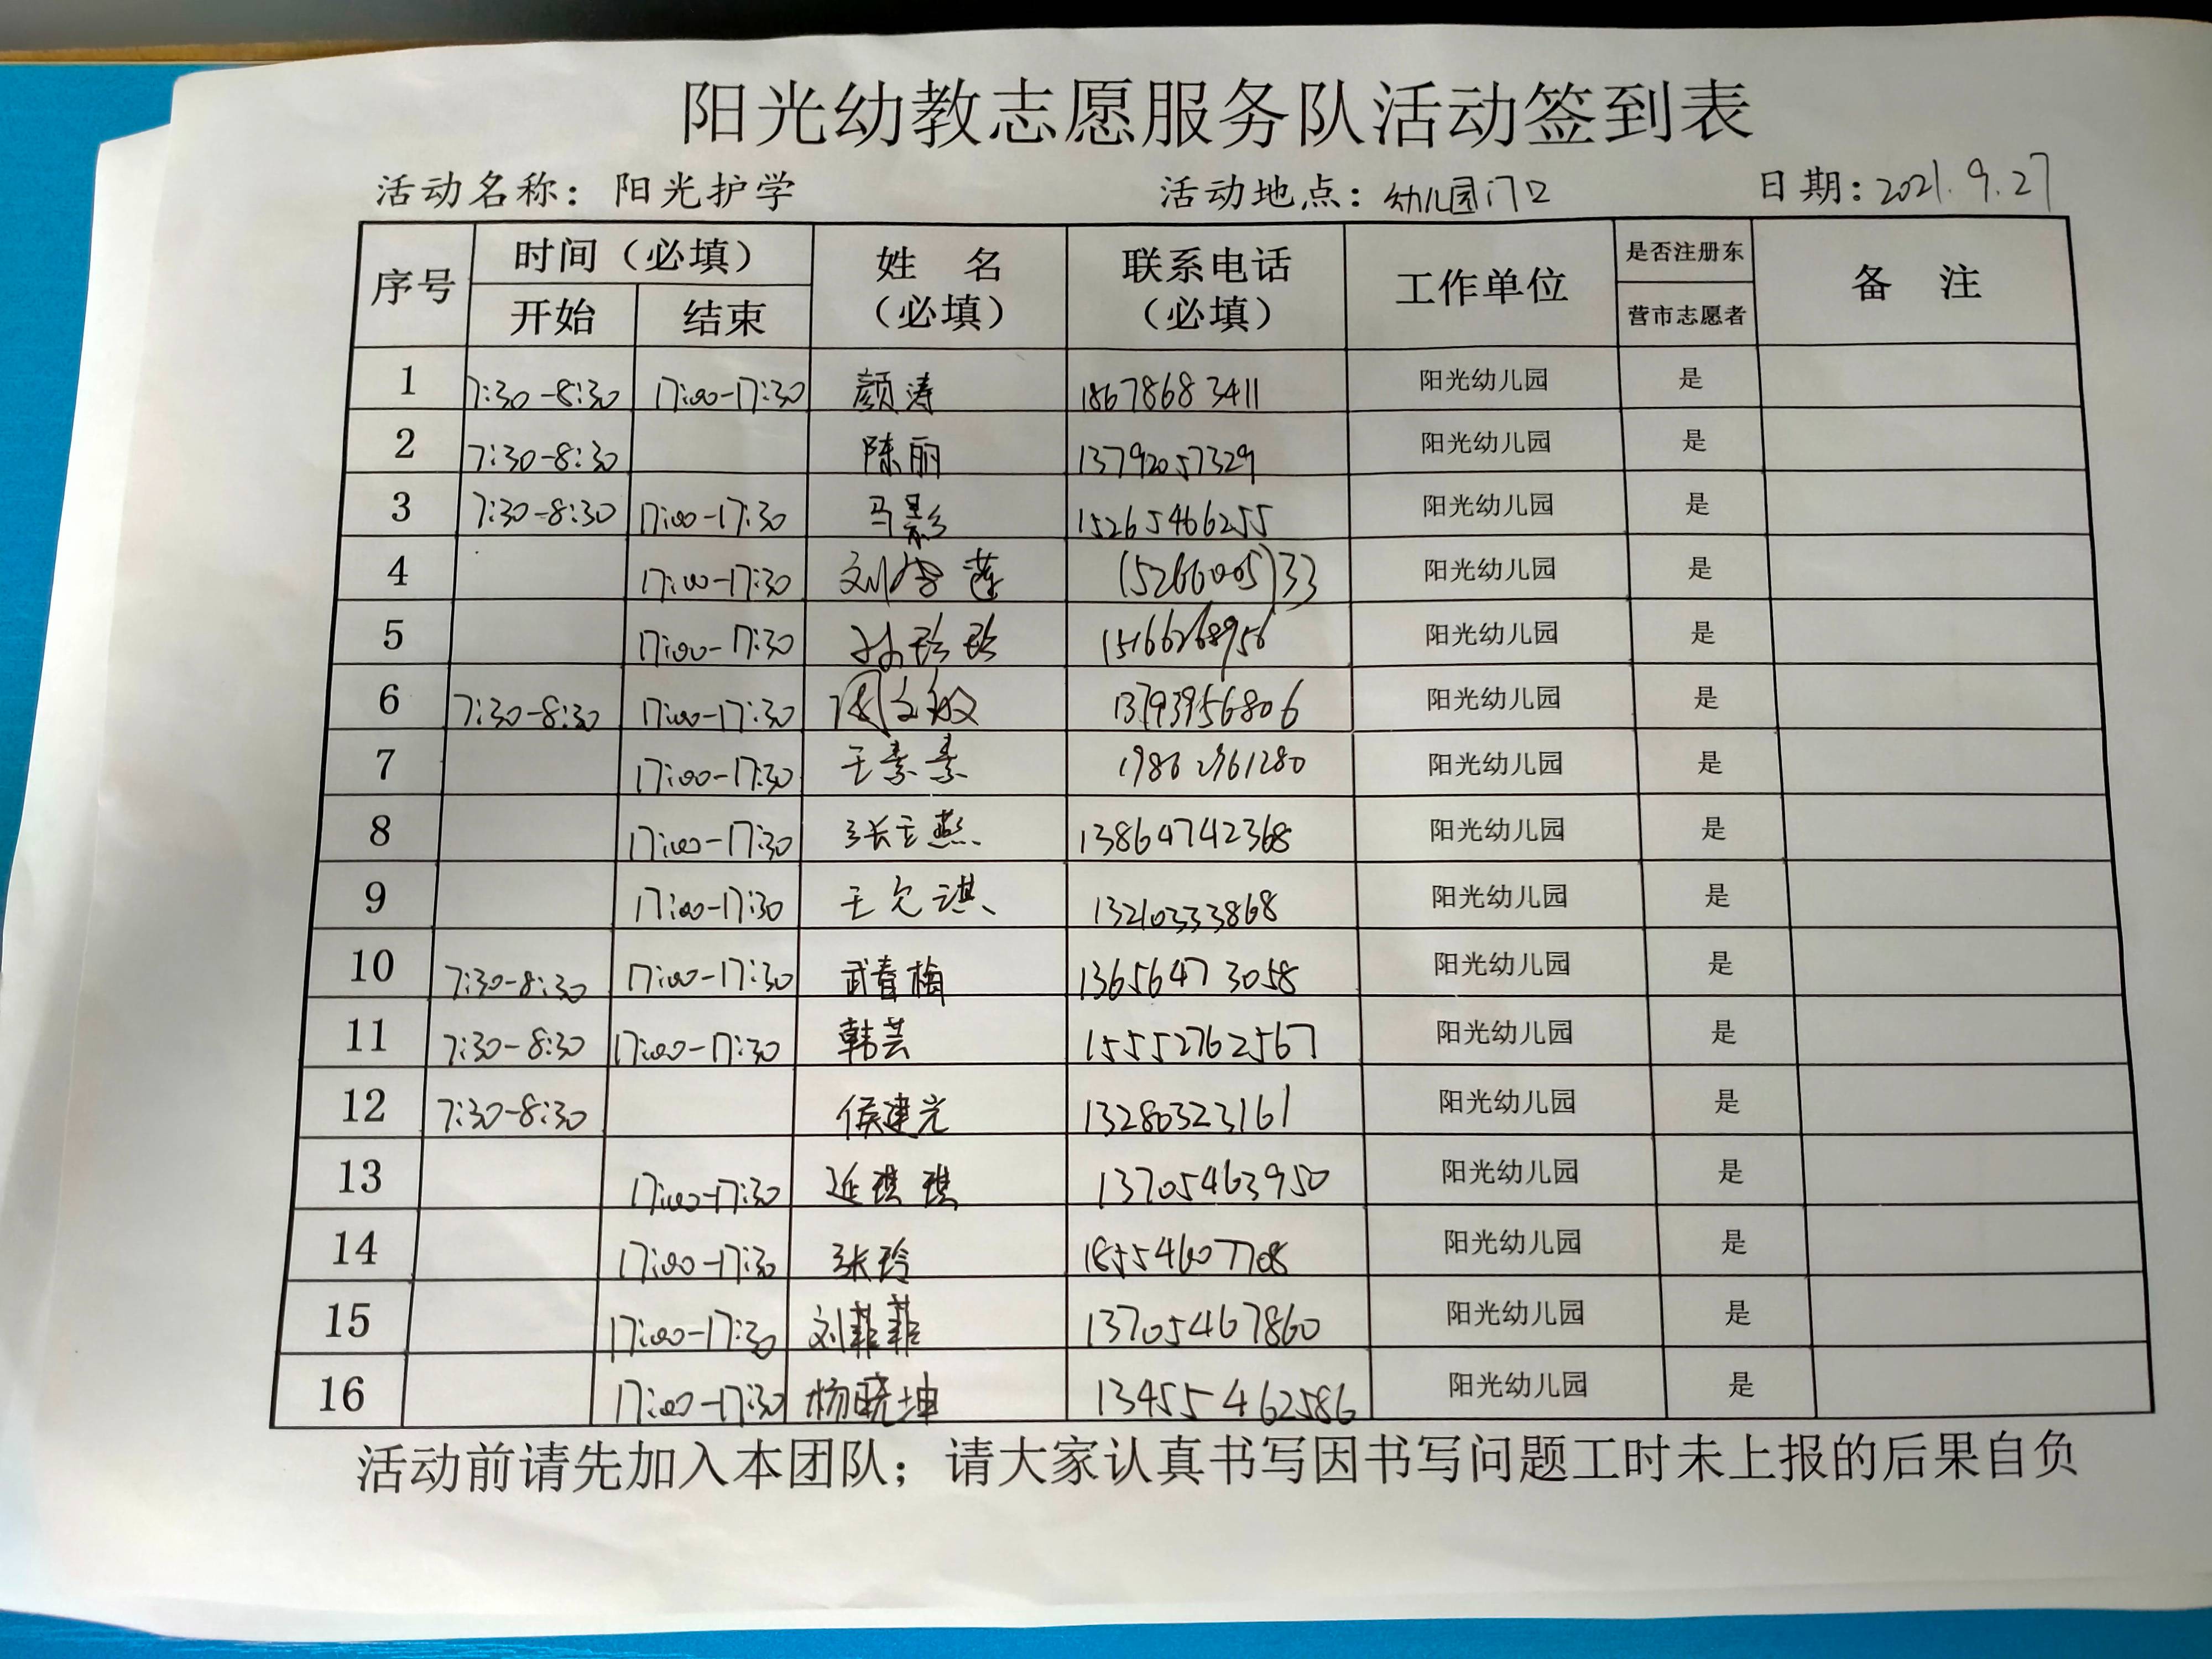 阳光幼教志愿服务队活动签到表
活动名称：阳光护学 活动地点：幼儿园门口 日期：2021.9.27
序号 时间（必填） 姓 名（必填） 联系电话（必填） 工作单位 是否注册东营市志愿者 备 注
开始 结束
1 7:30-8:30 17:00-17:30 颜涛 18678683411 阳光幼儿园 是
2 7:30-8:30 陈丽 13792057329 阳光幼儿园 是
3 7:30-8:30 17:00-17:30 马影 15265466255 阳光幼儿园 是
4 17:00-17:30 刘 莲 阳光幼儿园 是
5 17:00-17:30 孙珍珍 15166268956 阳光幼儿园 是
6 7:30-8:30 17:00-17:30 周文敏 13793956806 阳光幼儿园 是
7 17:00-17:30 王素素 阳光幼儿园 是
8 17:00-17:30 张玉燕 13864742368 阳光幼儿园 是
9 17:00-17:30 王允琪 13210333868 阳光幼儿园 是
10 7:30-8:30 17:00-17:30 武春梅 13656473058 阳光幼儿园 是
11 7:30-8:30 17:00-17:30 韩芸 15552762567 阳光幼儿园 是
12 7:30-8:30 侯建光 13280323161 阳光幼儿园 是
13 17:00-17:30 延琪琪 13705463950 阳光幼儿园 是
14 17:00-17:30 张玲 18554607708 阳光幼儿园 是
15 17:00-17:30 刘菲菲 13705467860 阳光幼儿园 是
16 17:00-17:30 杨晓坤 13455462586 阳光幼儿园 是
活动前请先加入本团队；请大家认真书写因书写问题工时未上报的后果自负